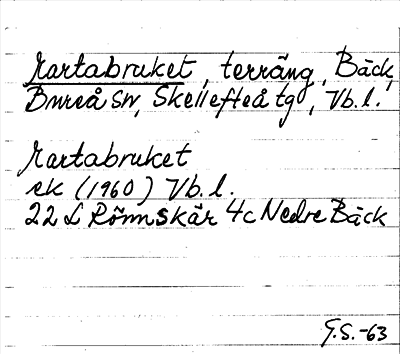 Martabruket, terräng, Bäck,
Bureå sn, Skellefteå tg, Vb. l.
Martabruket
ek (1960) Vb. l.
22 L Rönnskär 4c Nedre Bäck
G.S. -63